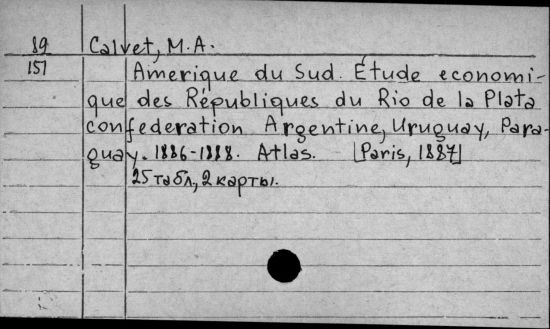 89 Calvet, M.A.
157 Amerique du Sud. Étude economi-
que des Républiques du Rio de la Plata
confederation Argentine, Uruguay, Para-
guay. 1886-1888. Atlas. [Paris, 1887]
25 табл., 2 карты.